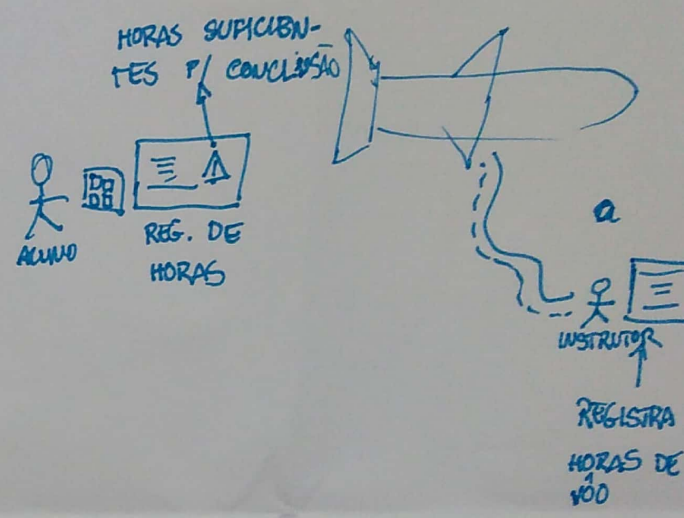 HORAS SUFICIEN-
TES P/ CONCLUSÃO
ALUNO
REG. DE
HORAS
a
INSTRUTOR
REGISTRA
HORAS DE
VÔO